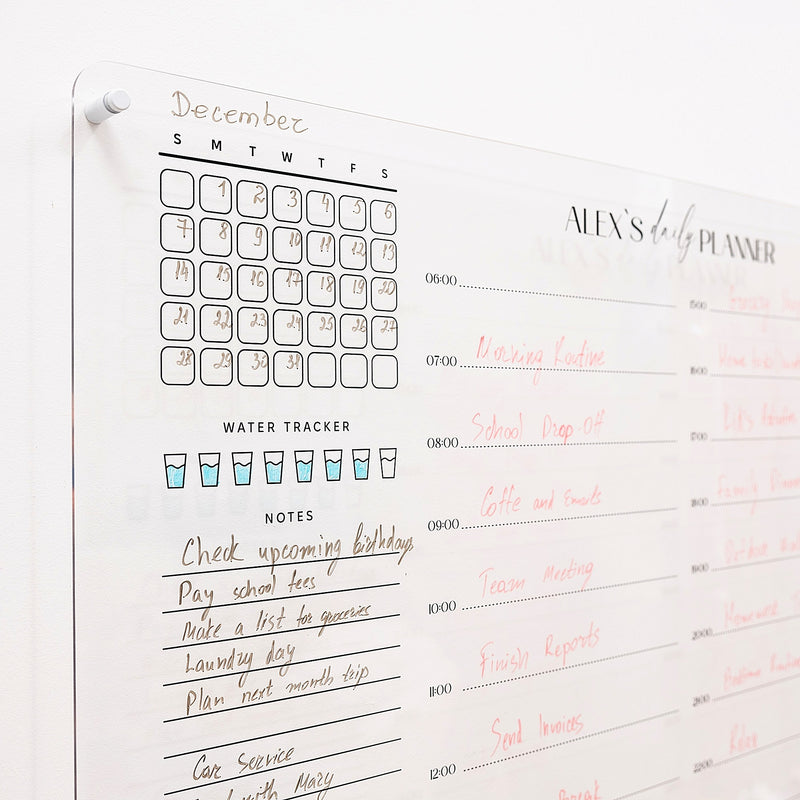 December
S M T W T F S
1 2 3 4 5 6
7 8 9 10 11 12 13
14 15 16 17 18 19 20
21 22 23 24 25 26 27
28 29 30 31
WATER TRACKER
NOTES
Check upcoming birthdays
Pay school fees
Make a list for groceries
Laundry day
Plan next month trip
Car Service
with Mary
ALEX'S daily PLANNER
06:00
07:00 Morning Routine
08:00 School Drop-Off
09:00 Coffe and Emails
10:00 Team Meeting
11:00 Finish Reports
12:00 Send Invoices
Break
15:00
16:00
17:00
18:00 Family
19:00 Outdoor
20:00 Homework
Routine
22:00 Relax